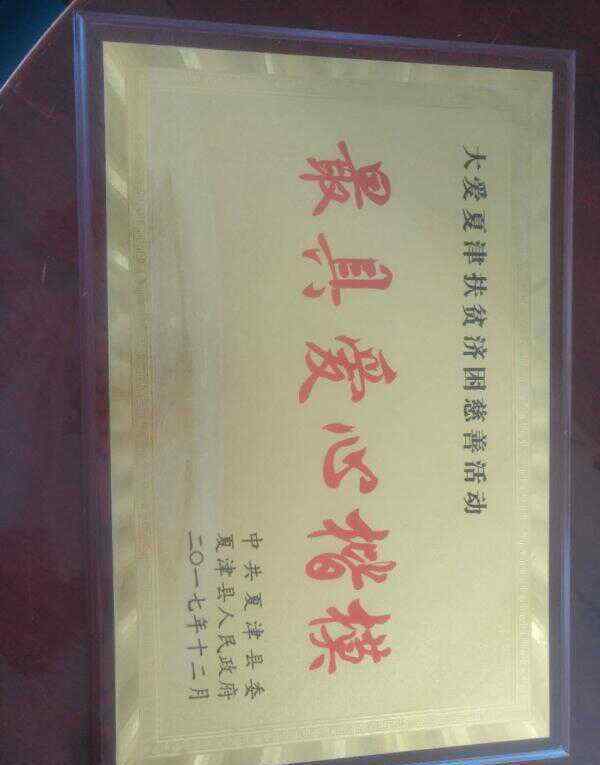 大爱夏津扶贫济困慈善活动
最具爱心楷模
中共夏津县委
夏津县人民政府
二〇一七年十二月